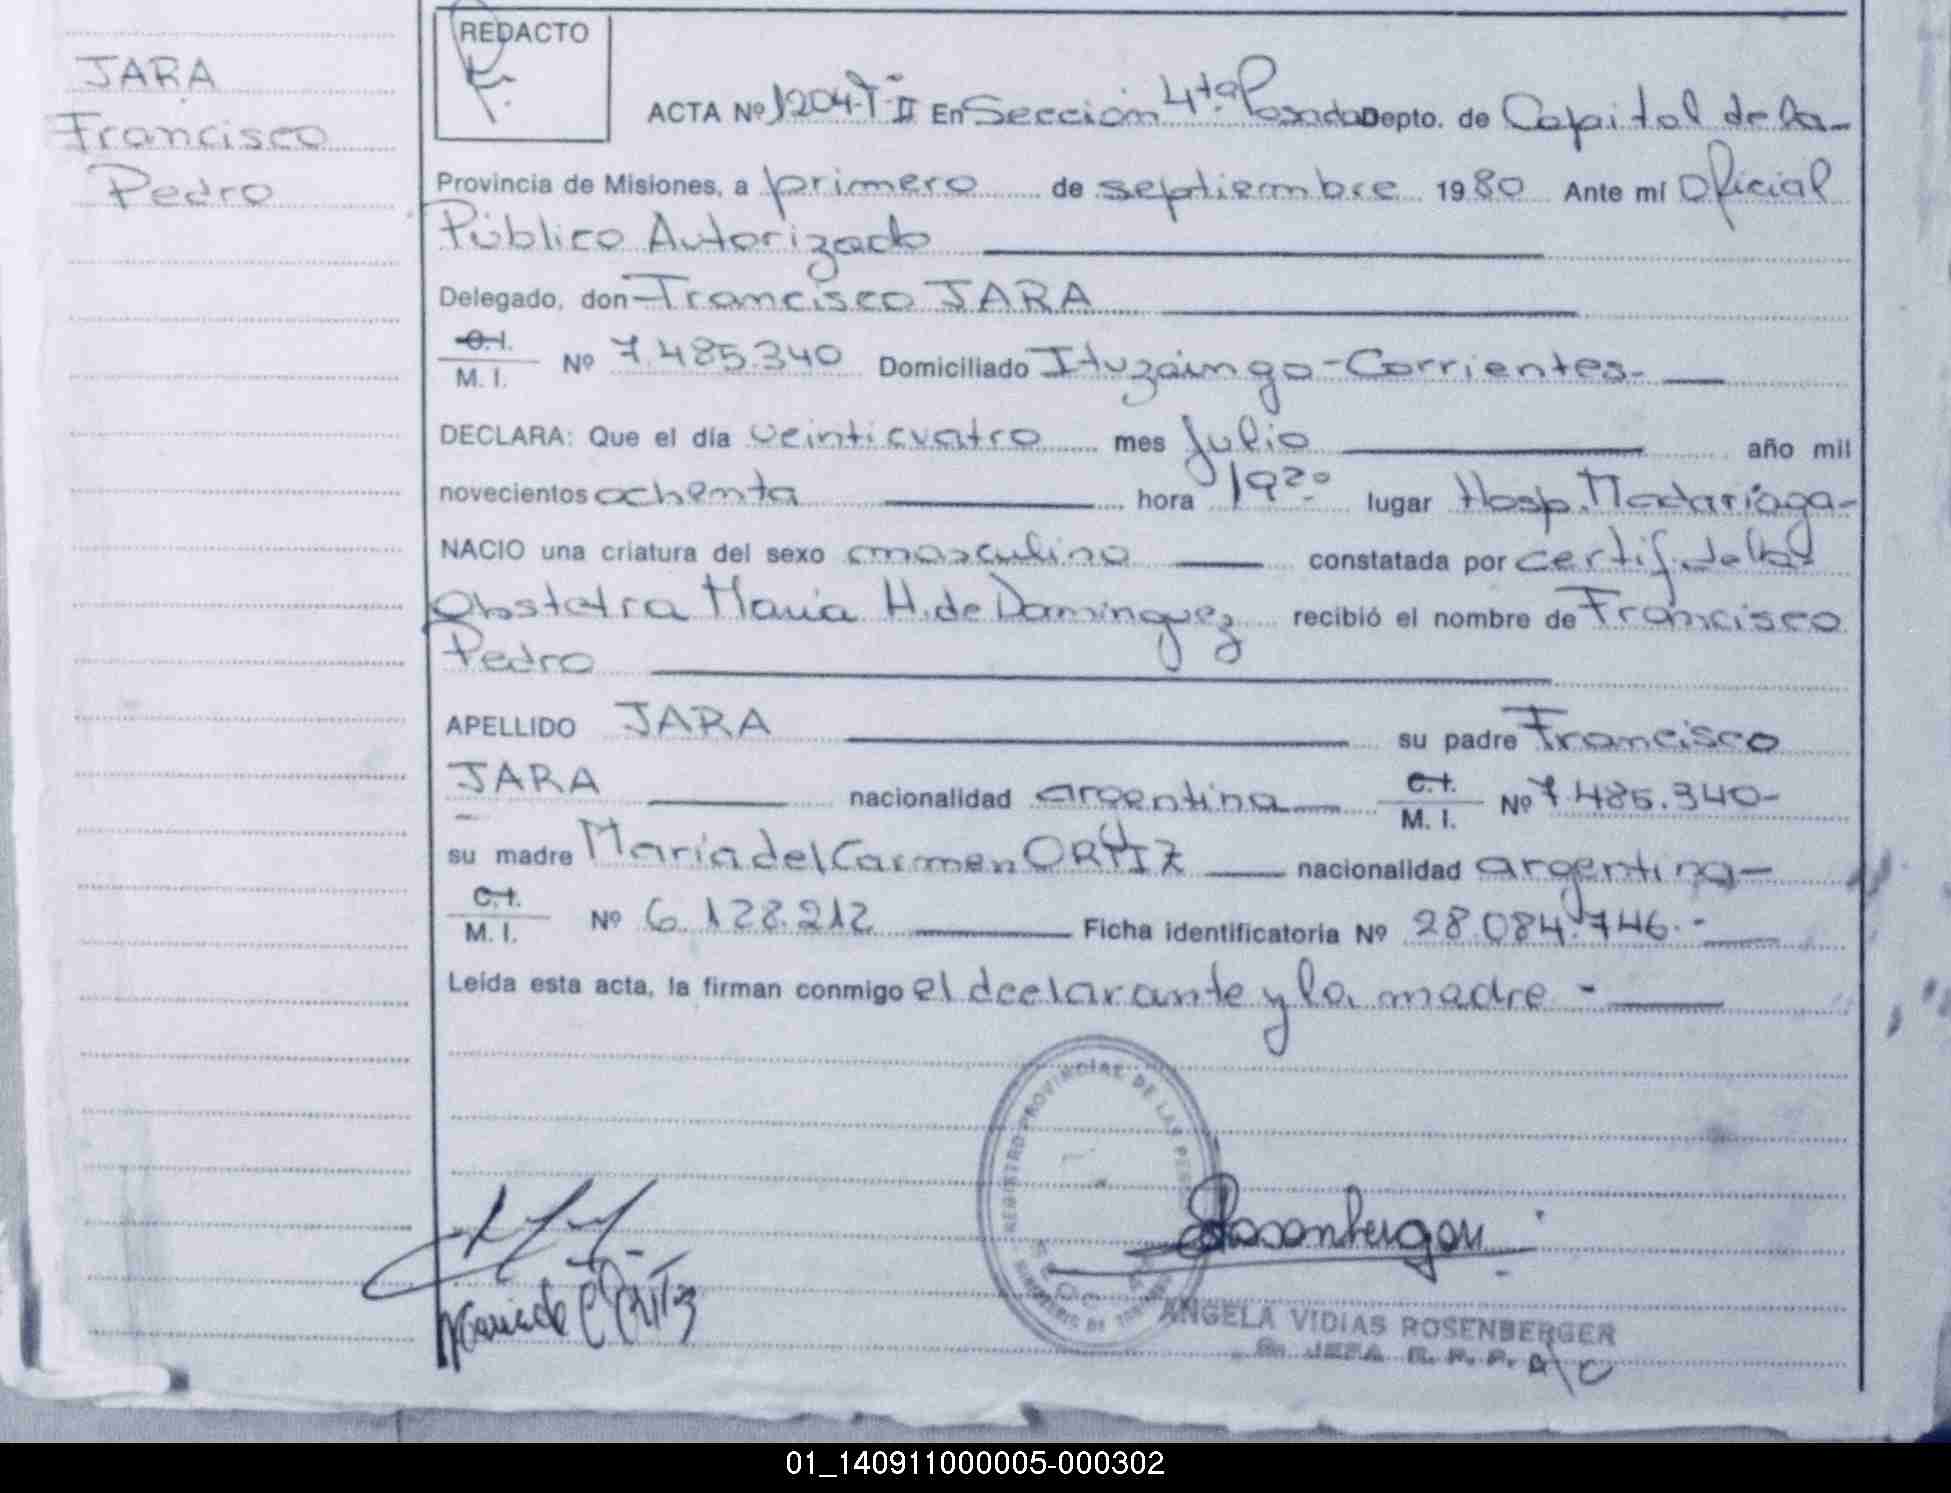 JARA
Francisco
Pedro
REDACTO
ACTA Nº 1204-T-II En Sección 4ta Posadas Depto. de Capital de la
Provincia de Misiones, a primero de septiembre 1980 Ante mí Oficial
Público Autorizado
Delegado, don Francisco JARA
C.I.
M. I. Nº 7.485.340 Domiciliado Ituzaingo - Corrientes.
DECLARA: Que el día veinticuatro mes Julio año mil
novecientos ochenta hora 19 20 lugar Hosp. Madariaga-
NACIO una criatura del sexo masculino constatada por certif. de la
Obstetra Maria H. de Dominguez recibió el nombre de Francisco
Pedro
APELLIDO JARA su padre Francisco
JARA nacionalidad argentina C.I.
M. I. Nº 7.485.340-
su madre María del Carmen ORTIZ nacionalidad argentina-
C.I.
M. I. Nº 6.128.212 Ficha identificatoria Nº 28.084.746.-
Leída esta acta, la firman conmigo el declarante y la madre -
REGISTRO PROVINCIAL DE LAS
Maria de C Ortiz
Rosenberger
ANGELA VIDIAS ROSENBERGER
JEFA R. P. P. a/c
01_140911000005-000302